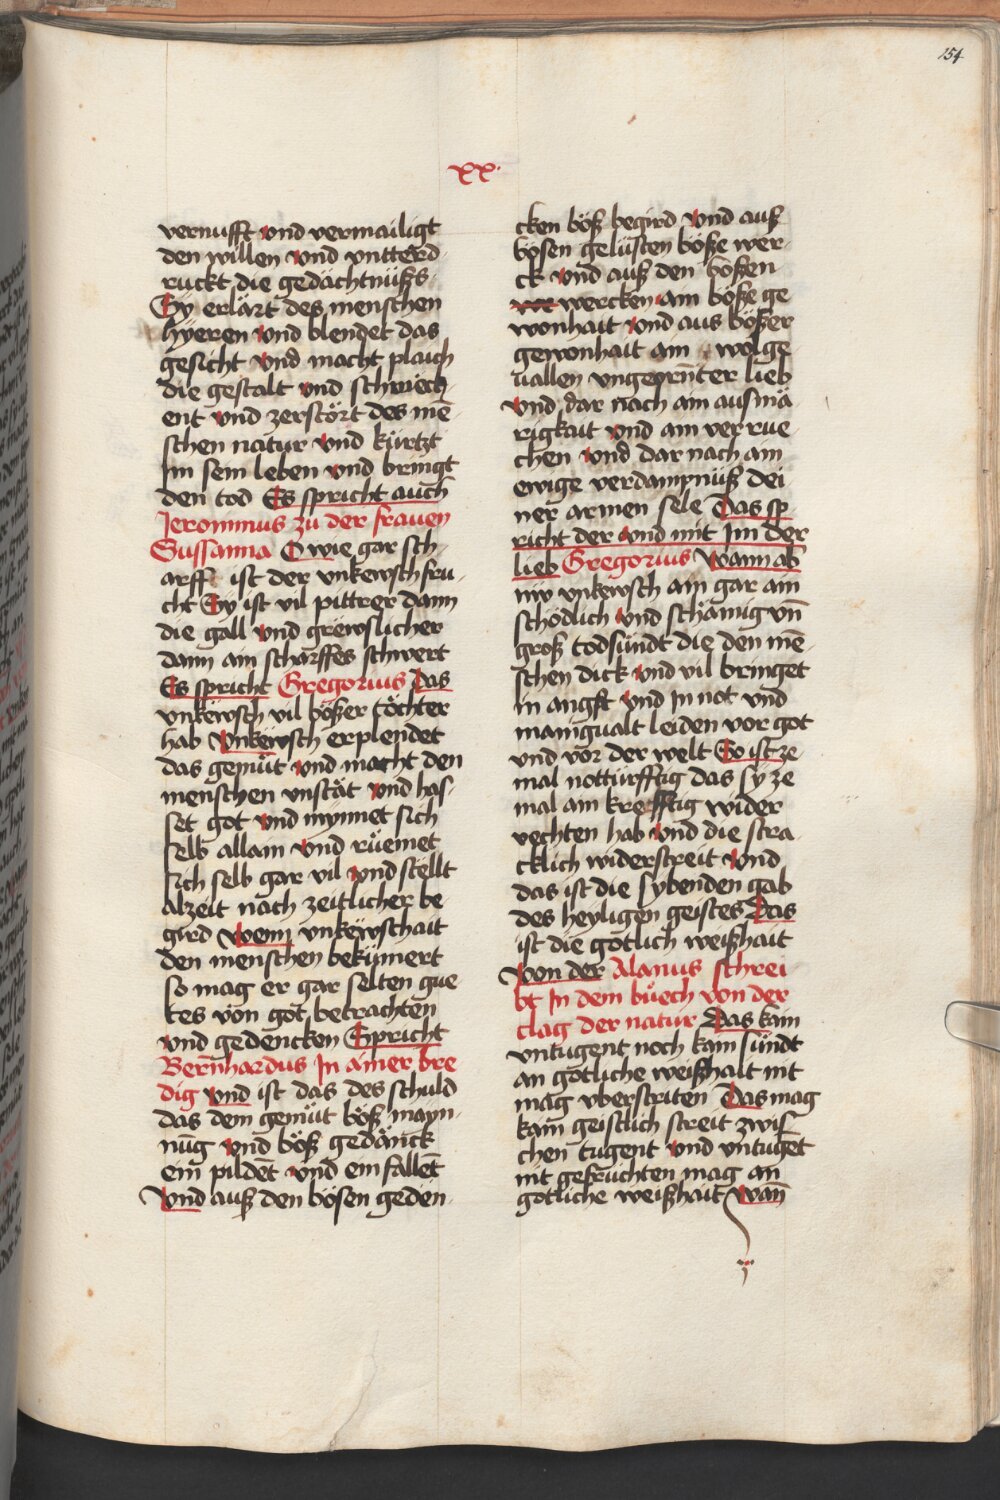 154
xx.
vernufft vnd vermailigt
den willen vnd vntterd
ruckt die gedächtnüßs.
Sy erlärt des menschen
hyeren vnd blendet das
gesicht vnd macht plaich
die gestalt vnd schwech
ent vnd zerstört des mē
schen natur vnd kürtzt
Im sein leben vnd bringt
den tod Es spricht auch
Jeronimus zu der frauen
Sussanna O wie gar sch
arff ist der vnkewsch fru
cht Sy ist vil pittrer dann
die gall vnd grëwslicher
dann ain scharffes schwert
Es spricht Gregorius Das
vnkewsch vil bößer töchter
hab Vnkewsch erplendet
das gemüt vnd macht den
menschen vnstät vnd has-
set got vnd mynnet sich
selb allain vnd rüemet
sich selb gar vil vnd stellt
alzeit nach zeitlicher be
gird Wenn vnkewschait
den menschen bekümert
so mag er gar selten gue
tes von got betrachten
vnd gedencken Spricht
Bernhardus In ainer bre
dig Vnd ist das des schuld
das dem gemüt böß mayn-
nūg vnd böß gedänck
ein pildēt vnd ein fallēt
Vnd auß den bösen geden-
cken böß begird vnd auß
bösen gelüsten böße wer-
ck vnd auß den bößen
wercken ain böße ge
wonhait vnd aus bößer
gewonhait ain wolge
uallen vngeornter lieb
vnd dar nach ain ausmä
rigkait vnd ain verrue
chen vnd dar nach ain
ewige verdampnüß dei
ner armen sele Das sp
richt der vnd mit Im der
lieb Gregorius Wann ab
niv vnkewsch ain gar ain
schödlich vnd schämig vn̄
groß todsündt die den mē
schen dick vnd vil bringet
in angst vnd In not vnd
manigualt leiden vor got
vnd vor der welt So ist ze
mal notturfftig das sy ze
mal ain krefftig wider
vechten hab vnd die stra
cklich widerstreit vnd
das ist die sybenden gab
des heyligen geistes Das
ist die götlich weißhait
Von der Alanus schrei
bt In dem büech von der
clag der natur Das kain
vntugent noch kain sündt
an götliche weißhait nit
mag vberstriten Das mag
kain geistlich streit zwis
chen tugent vnd vntuget
nit gefruchten mag an
gotliche weißhait Wan̄